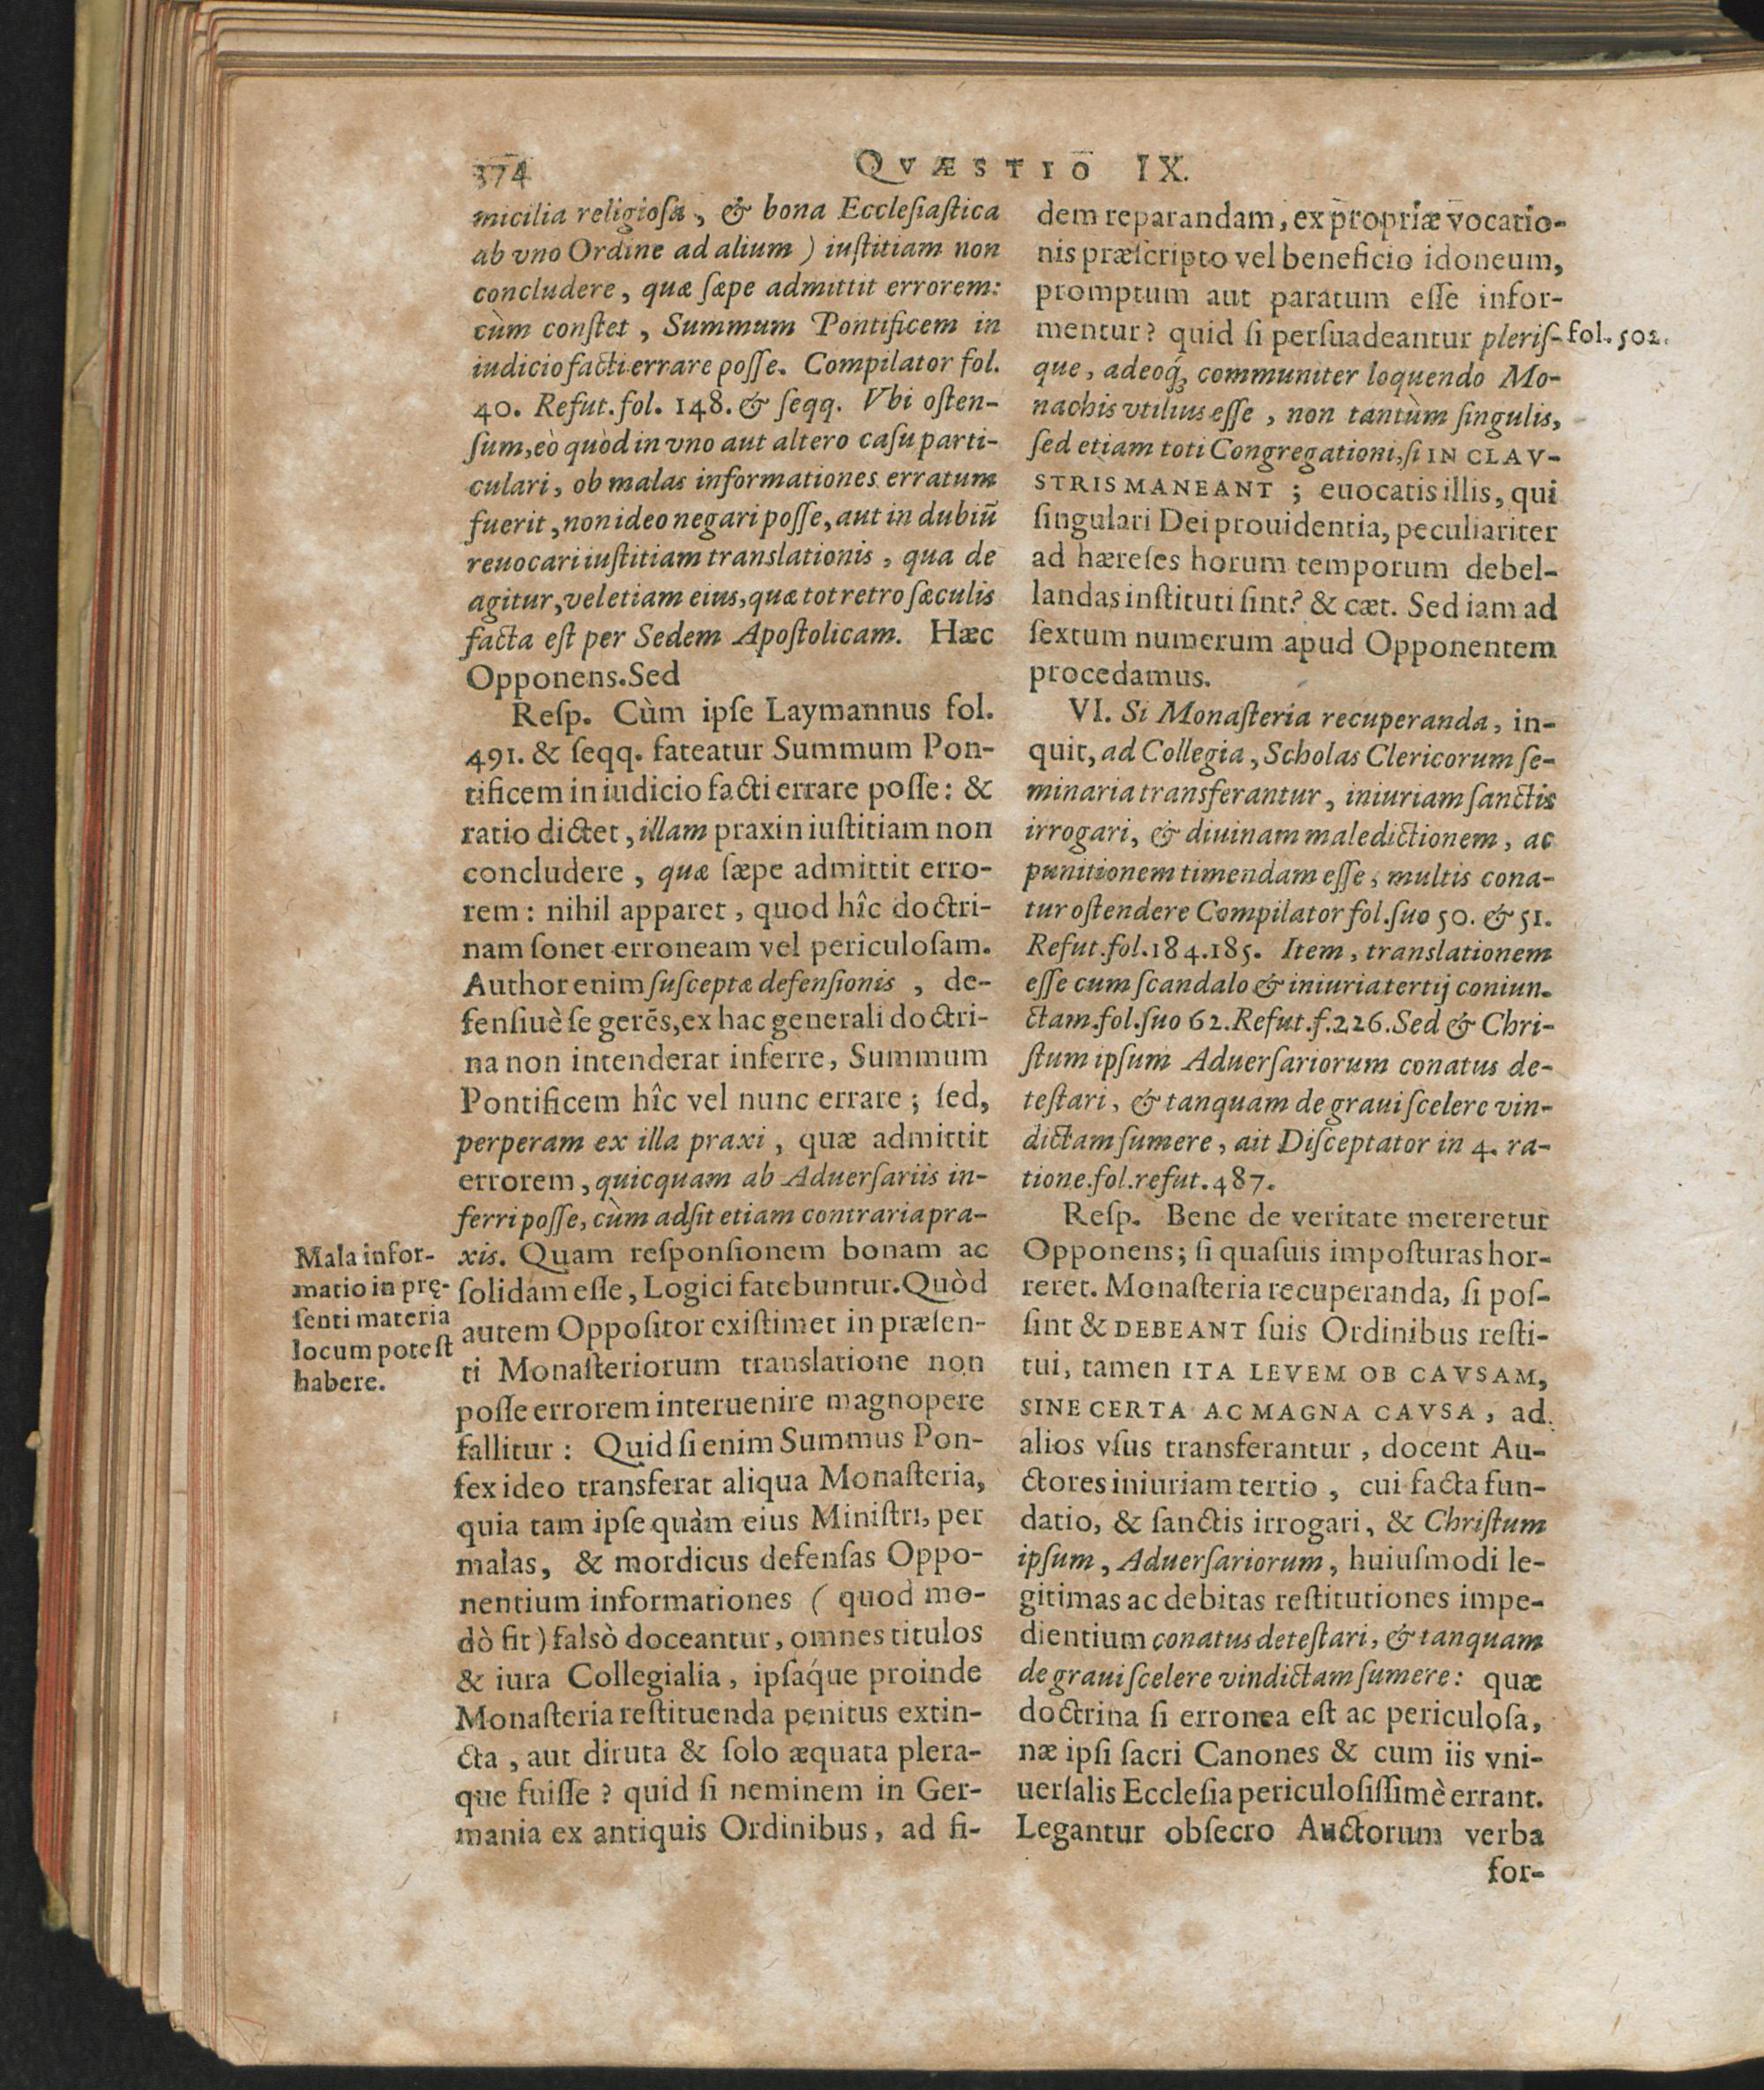 374
QVÆSTIO IX.
micilia religioſa, & bona Eccleſiaſtica
ab vno Ordine ad alium) iuſtitiam non
concludere, quæ ſæpe admittit errorem:
cùm conſtet, Summum Pontificem in
iudicio facti errare poſſe. Compilator fol.
40. Refut. fol. 148. & ſeqq. Vbi oſten-
ſum, eò quòd in vno aut altero caſu parti-
culari, ob malas informationes erratum
fuerit, non ideo negari poſſe, aut in dubiū
reuocari iuſtitiam translationis, qua de
agitur, vel etiam eius, quæ tot retro ſæculis
facta eſt per Sedem Apoſtolicam. Hæc
Opponens. Sed
Reſp. Cùm ipſe Laymannus fol.
491. & ſeqq. fateatur Summum Pon-
tificem in iudicio facti errare poſſe: &
ratio dictet, illam praxin iuſtitiam non
concludere, quæ ſæpe admittit erro-
rem: nihil apparet, quod hîc doctri-
nam ſonet erroneam vel periculoſam.
Author enim ſuſceptæ defenſionis, de-
fenſiuè ſe gerēs, ex hac generali doctri-
na non intenderat inferre, Summum
Pontificem hîc vel nunc errare; ſed,
perperam ex illa praxi, quæ admittit
errorem, quicquam ab Aduerſariis in-
ferri poſſe, cùm adſit etiam contraria pra-
xis. Quam reſponſionem bonam ac
ſolidam eſſe, Logici fatebuntur. Quòd
autem Oppoſitor exiſtimet in præſen-
ti Monaſteriorum translatione non
poſſe errorem interuenire magnopere
fallitur: Quid ſi enim Summus Pon-
fex ideo transferat aliqua Monaſteria,
quia tam ipſe quàm eius Miniſtri, per
malas, & mordicus defenſas Oppo-
nentium informationes (quod mo-
dò fit) falsò doceantur, omnes titulos
& iura Collegialia, ipſáque proinde
Monaſteria reſtituenda penitus extin-
cta, aut diruta & ſolo æquata plera-
que fuiſſe? quid ſi neminem in Ger-
mania ex antiquis Ordinibus, ad fi-
Mala infor-
matio in prę-
ſenti materia
locum poteſt
habere.
dem reparandam, ex propriæ vocatio-
nis præſcripto vel beneficio idoneum,
promptum aut paratum eſſe infor-
mentur? quid ſi perſuadeantur pleriſ-
que, adeoq́; communiter loquendo Mo-
nachis vtilius eſſe, non tantùm ſingulis,
ſed etiam toti Congregationi, ſi IN CLAV-
STRIS MANEANT; euocatis illis, qui
ſingulari Dei prouidentia, peculiariter
ad hæreſes horum temporum debel-
landas inſtituti ſint? & cæt. Sed iam ad
ſextum numerum apud Opponentem
procedamus.
VI. Si Monaſteria recuperanda, in-
quit, ad Collegia, Scholas Clericorum ſe-
minaria transferantur, iniuriam ſanctis
irrogari, & diuinam maledictionem, ac
punitionem timendam eſſe, multis cona-
tur oſtendere Compilator fol. ſuo 50. & 51.
Refut. fol. 184. 185. Item, translationem
eſſe cum ſcandalo & iniuria tertij coniun-
ctam. fol. ſuo 62. Refut. f. 226. Sed & Chri-
ſtum ipſum Aduerſariorum conatus de-
teſtari, & tanquam de graui ſcelere vin-
dictam ſumere, ait Diſceptator in 4. ra-
tione. fol. refut. 487.
Reſp. Bene de veritate mereretur
Opponens; ſi quaſuis impoſturas hor-
reret. Monaſteria recuperanda, ſi poſ-
ſint & DEBEANT ſuis Ordinibus reſti-
tui, tamen ITA LEVEM OB CAVSAM,
SINE CERTA AC MAGNA CAVSA, ad
alios vſus transferantur, docent Au-
ctores iniuriam tertio, cui facta fun-
datio, & ſanctis irrogari, & Chriſtum
ipſum, Aduerſariorum, huiuſmodi le-
gitimas ac debitas reſtitutiones impe-
dientium conatus deteſtari, & tanquam
de graui ſcelere vindictam ſumere: quæ
doctrina ſi erronea eſt ac periculoſa,
næ ipſi ſacri Canones & cum iis vni-
uerſalis Eccleſia periculoſiſſimè errant.
Legantur obſecro Auctorum verba
for-
fol. 502.